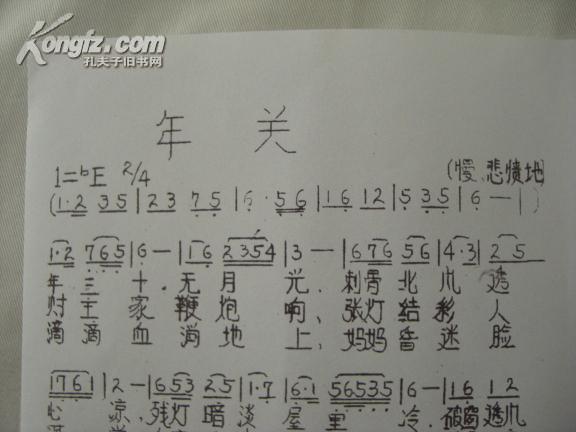 Kongfz.com
孔夫子旧书网
年 关
1=ᵇE 2/4 (慢、悲愤地)
(1·2 35|23 75|6·56|16 12|5 35|6 —|)
1·2 765|6 —|16 2354|3 —|676 56|4·3|25
年三十,无月光,刺骨北风透
财主家鞭炮响、张灯结彩人
滴滴血淌地上,妈妈昏迷脸
1761|2 —|653 25|1·7|6·1|56535|6 —|16 12
心凉,残灯暗淡屋里冷,破窗透风